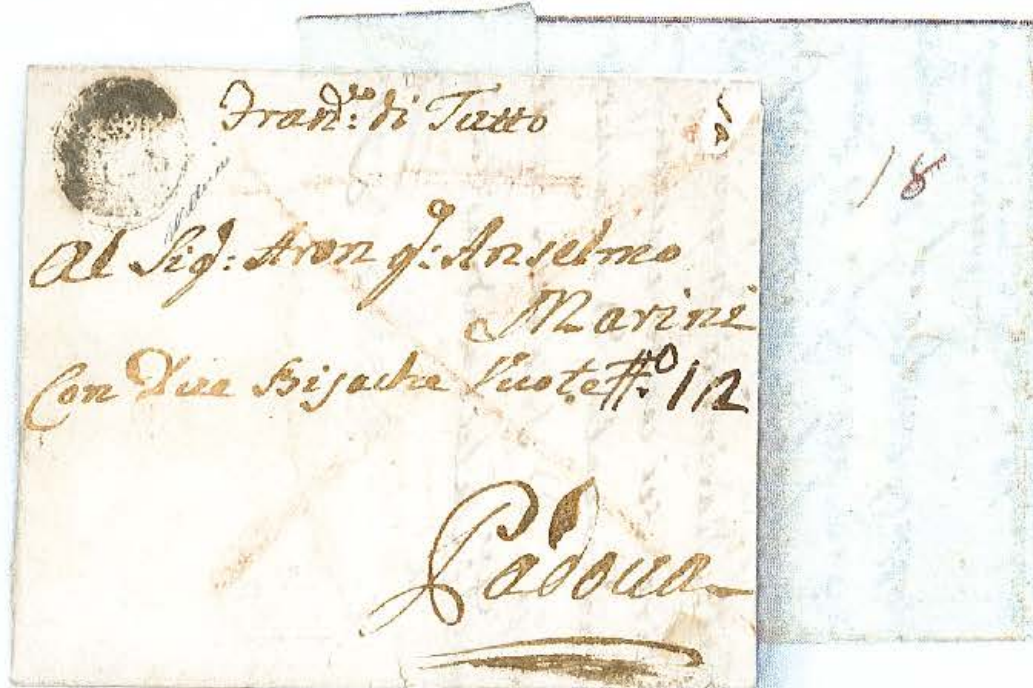 Fran.do: di Tutto
Al Sig.: Aron q.: Anselmo
Marini
Con Due Bisache Vuote #o: 112
Padova
18